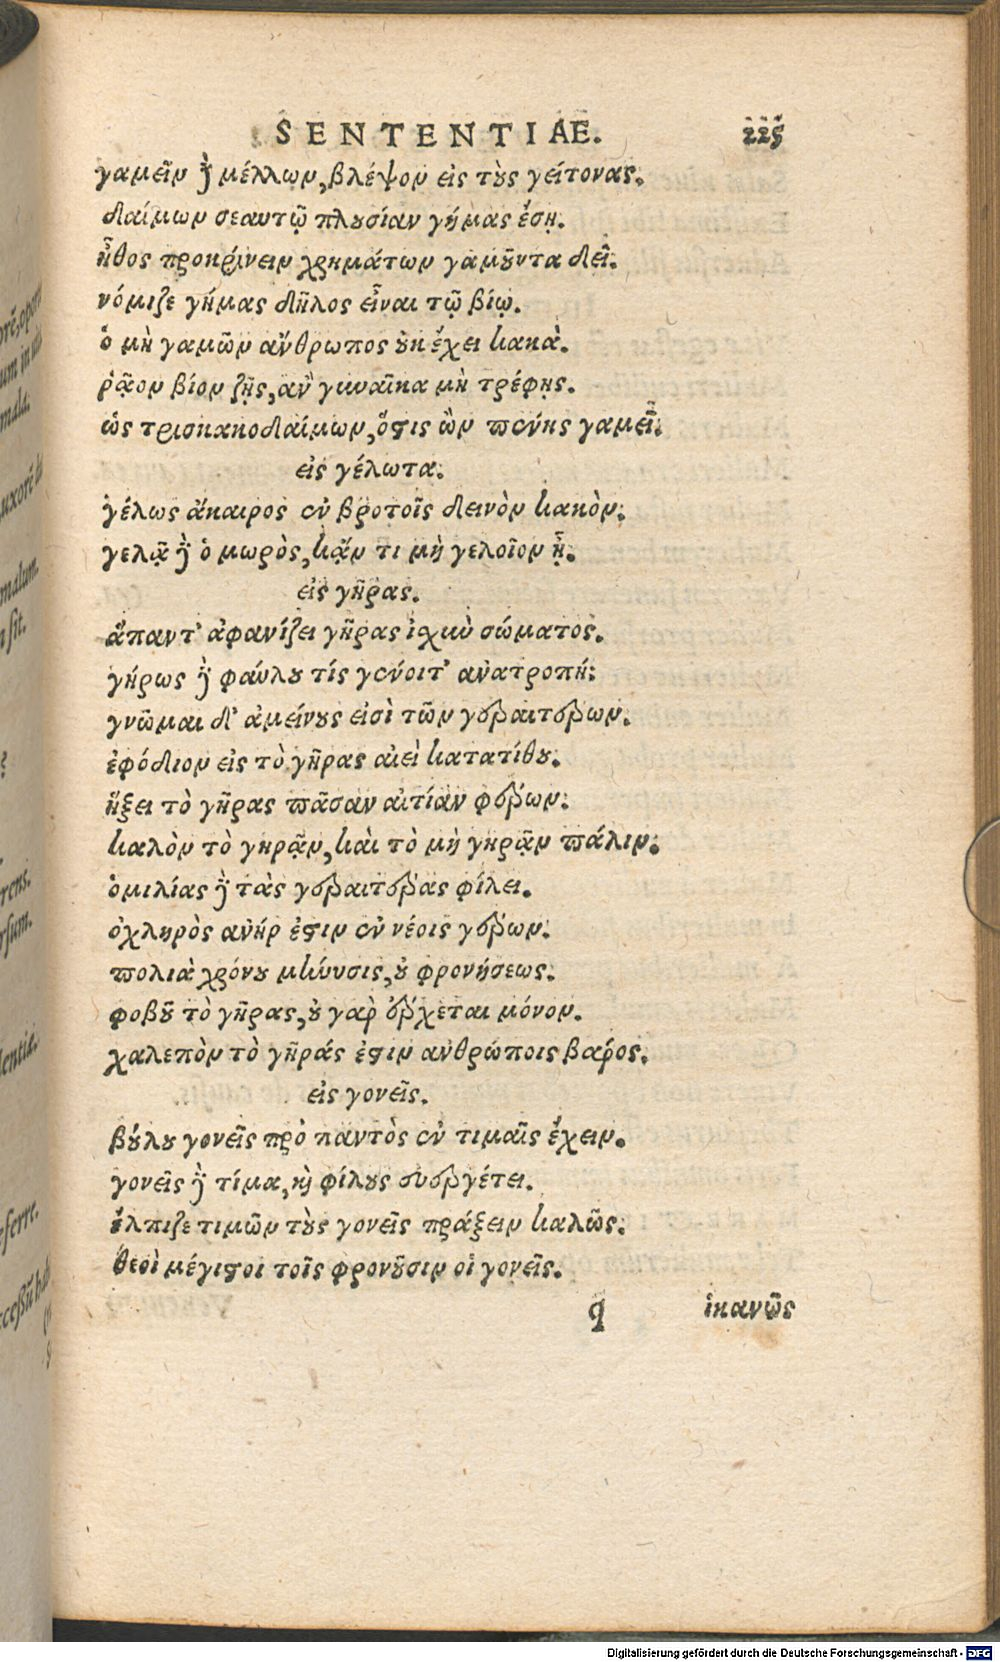 SENTENTIAE. 225
γαμεῖν ὁ μέλλων, βλέψον εἰς τοὺς γείτονας.
δαίμων σεαυτῷ πλουσίαν γήμας ἔσῃ.
ἦθος προκρίνειν χρημάτων γαμοῦντα δεῖ.
νόμιζε γήμας δῆλος εἶναι τῷ βίῳ.
ὁ μὴ γαμῶν ἄνθρωπος οὐκ ἔχει κακὰ.
ῥᾷον βίον ζῇς, ἂν γυναῖκα μὴ τρέφῃς.
ὡς τρισκακοδαίμων, ὅστις ὢν πένης γαμεῖ.
εἰς γέλωτα.
γέλως ἄκαιρος ἐν βροτοῖς δεινὸν κακὸν.
γελᾷ δ' ὁ μωρὸς, κἄν τι μὴ γελοῖον ᾖ.
εἰς γῆρας.
ἅπαντ' ἀφανίζει γῆρας ἰσχὺν σώματος.
γήρως δὲ φαύλου τίς γένοιτ' ἀνατροπή;
γνῶμαι δ' ἀμείνους εἰσὶ τῶν γεραιτέρων.
ἐφόδιον εἰς τὸ γῆρας αἰεὶ κατατίθου.
ἥξει τὸ γῆρας πᾶσαν αἰτίαν φέρων.
καλὸν τὸ γηρᾷν, καὶ τὸ μὴ γηρᾷν πάλιν.
ὁμιλίας δὲ τὰς γεραιτέρας φίλει.
ὀχληρὸς ἀνήρ ἐστιν ἐν νέοις γέρων.
πολιὰ χρόνου μήνυσις, οὐ φρονήσεως.
φοβοῦ τὸ γῆρας, οὐ γὰρ ἔρχεται μόνον.
χαλεπὸν τὸ γῆράς ἐστιν ἀνθρώποις βάρος.
εἰς γονεῖς.
βούλου γονεῖς πρὸ παντὸς ἐν τιμαῖς ἔχειν.
γονεῖς δὲ τίμα, καὶ φίλους εὐεργέτει.
ἔλπιζε τιμῶν τοὺς γονεῖς πράξειν καλῶς.
θεοὶ μέγιστοι τοῖς φρονοῦσιν οἱ γονεῖς.
q ἱκανῶς
Digitalisierung gefördert durch die Deutsche Forschungsgemeinschaft - DFG